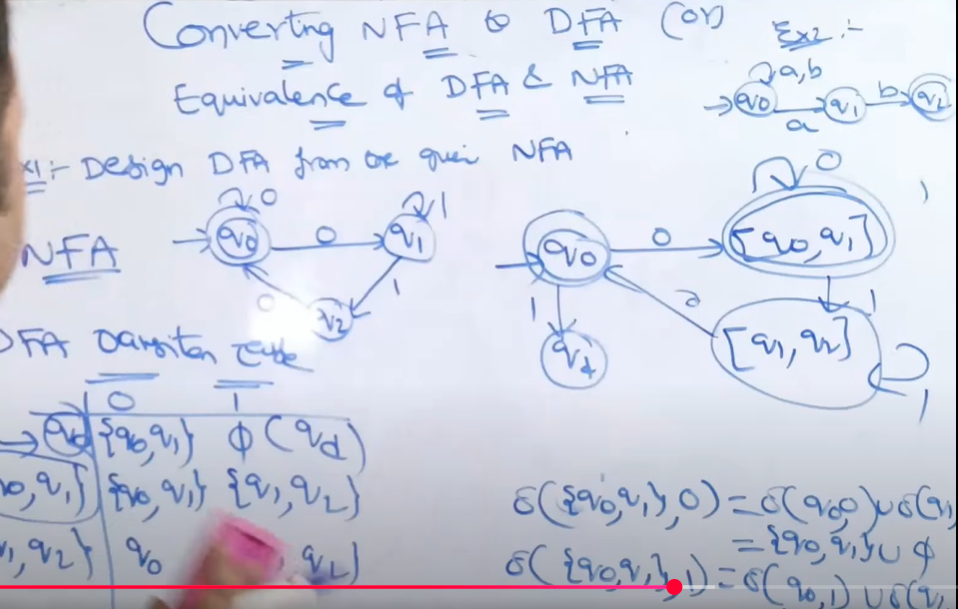 Converting NFA to DFA (or)
Equivalence of DFA & NFA
Ex2:-
a,b
q0 a q1 b q2
x1:- Design DFA from the given NFA
NFA
0
q0 0 q1 1
1
0
q2
0
q0 0 [q0,q1]
1
1
0
qd
[q1,q2]
1
DFA transition table
0 1
→ q0 {q0,q1} ϕ(qd)
q0,q1} {q0,q1} {q1,q2}
,q2} q0 , q2}
δ({q0,q1},0) = δ(q0,0) ∪ δ(q1,
= {q0,q1} ∪ ϕ
δ({q0,q1},1) = δ(q0,1) ∪ δ(q1